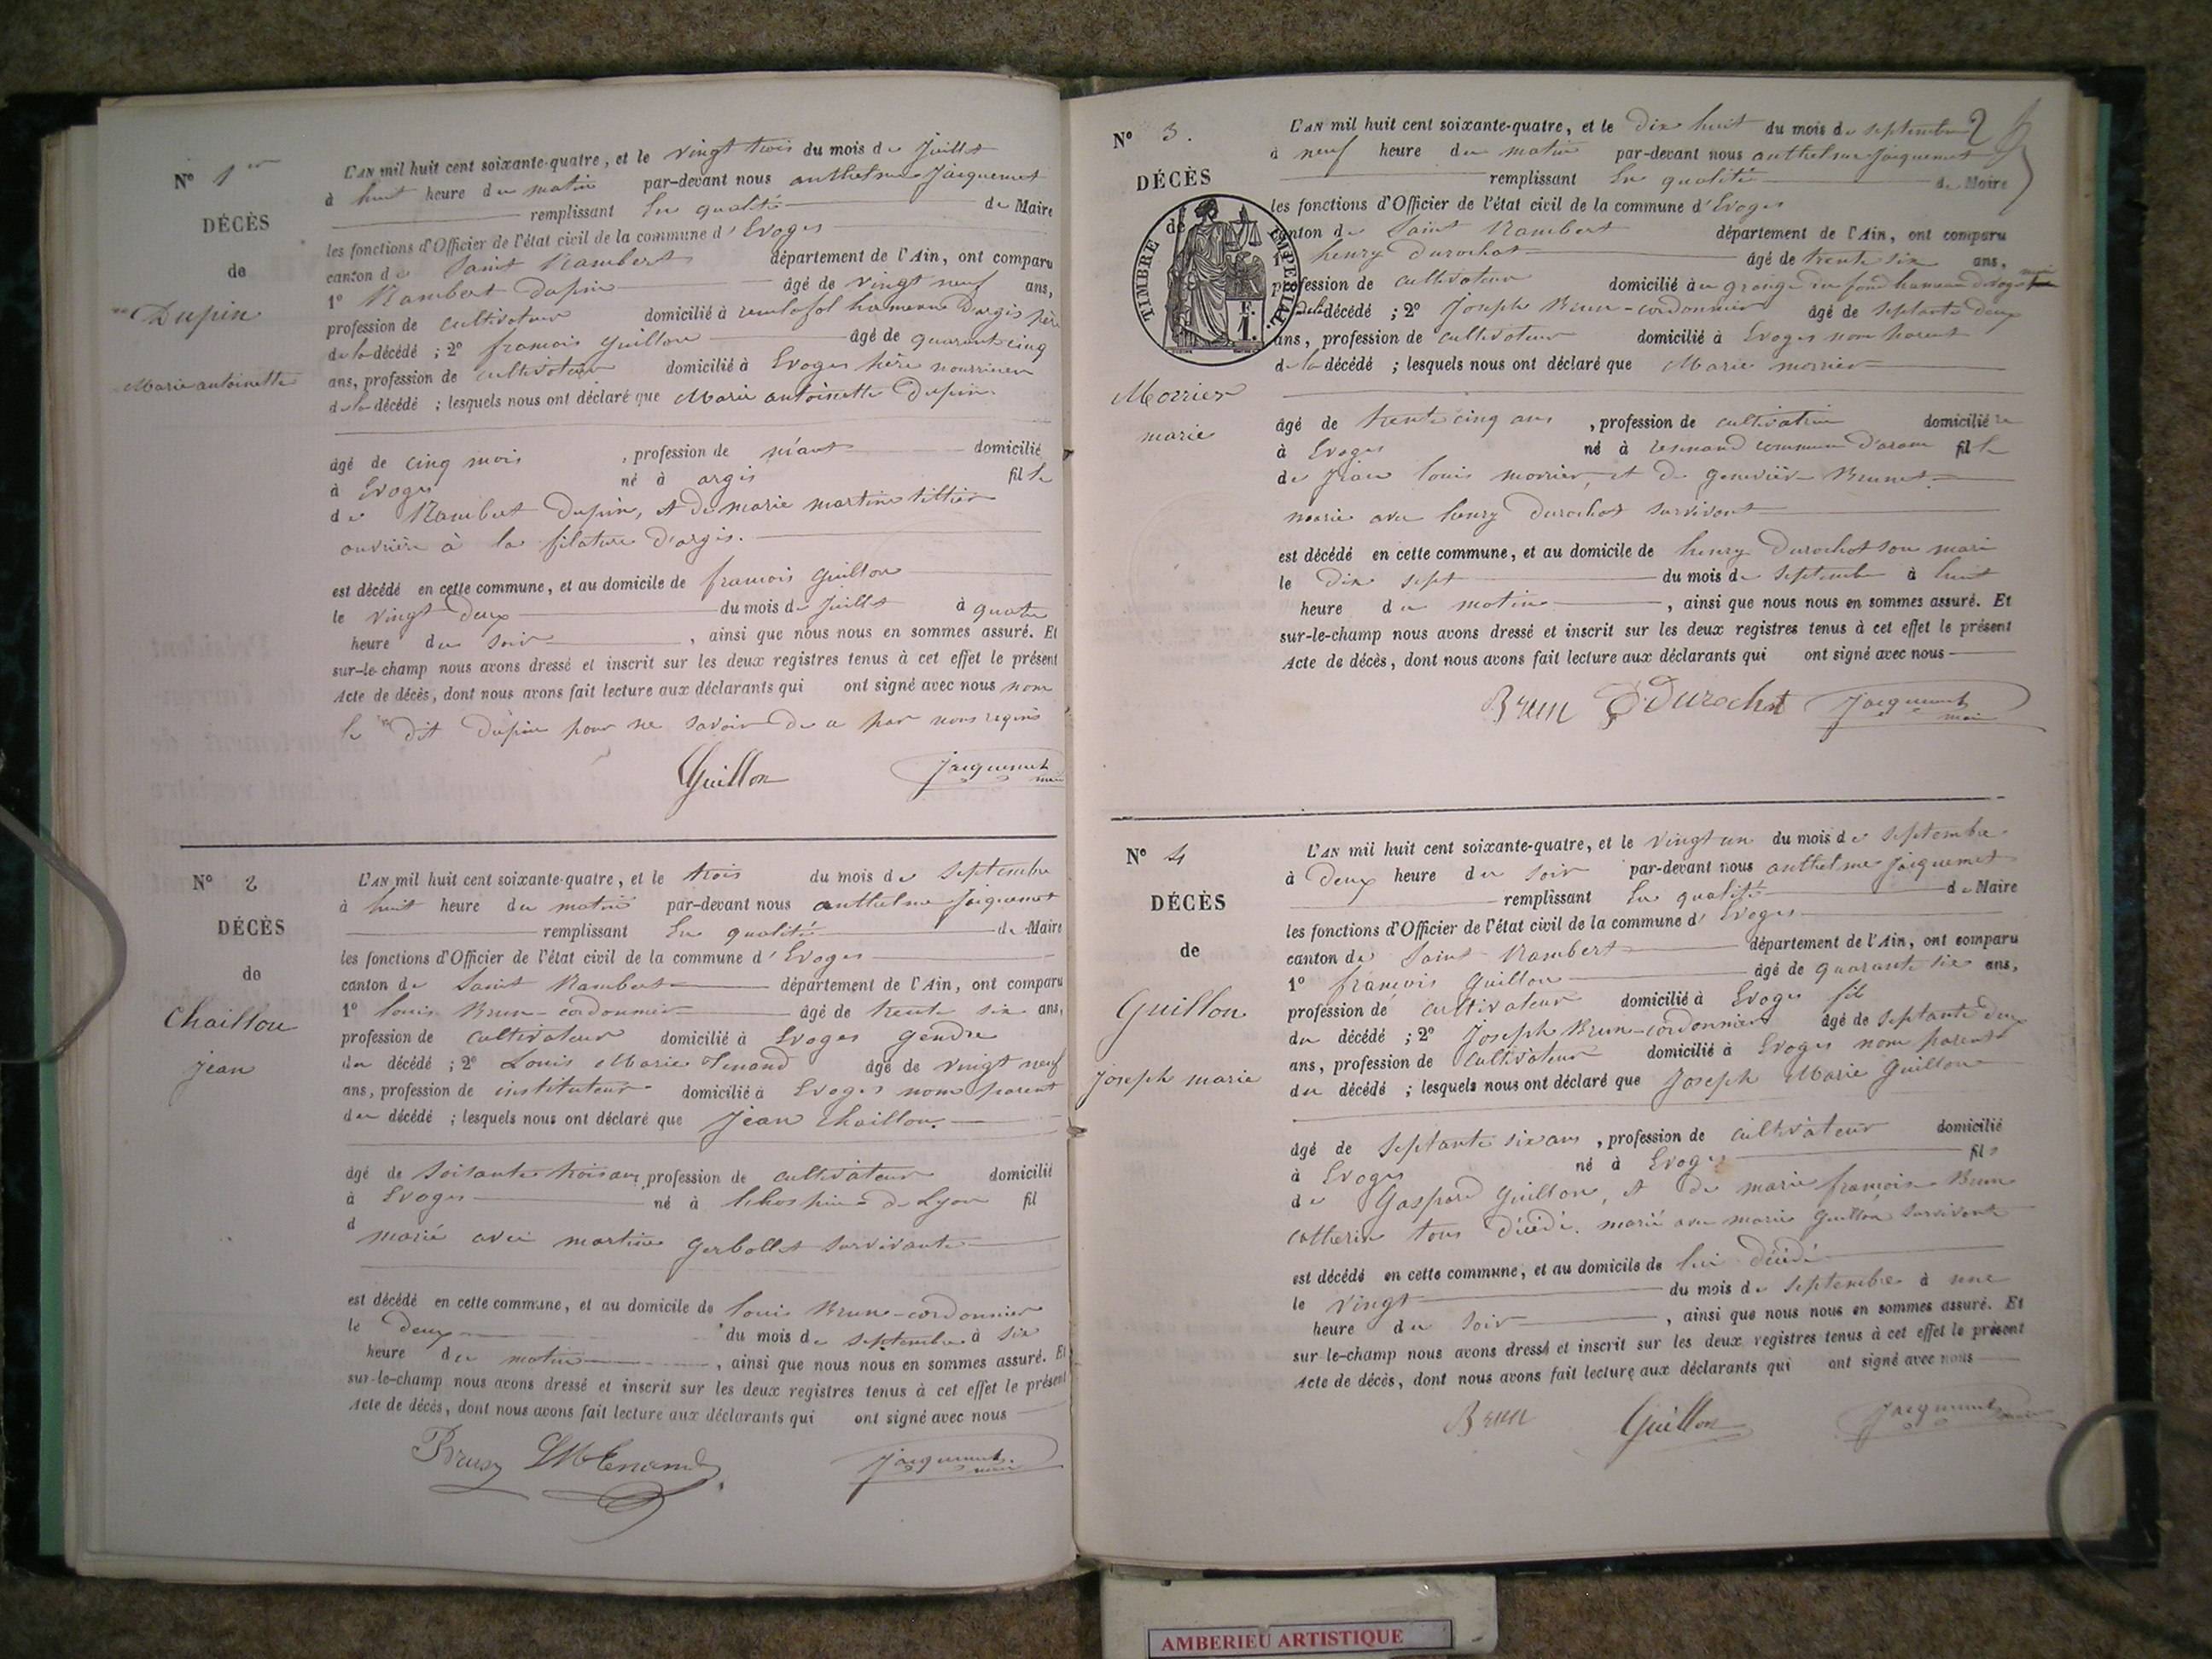 N° 1er
DÉCÈS
de
Dupin
Marie antoinette
L'AN mil huit cent soixante-quatre, et le vingt trois du mois de Juillet
à huit heure du matin par-devant nous anthelme Jacquemet
remplissant En qualité de Maire
les fonctions d'Officier de l'état civil de la commune d'Evoges
canton de Saint Rambert département de l'Ain, ont comparu
1° Rambert Dupin âgé de vingt neuf ans,
profession de cultivateur domicilié à hameau D'argis père
de la décédé ; 2° francois Guillon âgé de quarante cinq
ans, profession de cultivateur domicilié à Evoges père nourricier
de la décédé ; lesquels nous ont déclaré que Marie antoinette Dupin.
âgé de cinq mois , profession de néant domicilié
à Evoges né à argis fille
de Rambert Dupin, et de marie martine tillier
ouvrière à la filature d'argis.
est décédé en cette commune, et au domicile de francois Guillon
le vingt deux du mois de Juillet à quatre
heure du soir , ainsi que nous nous en sommes assuré. Et
sur-le-champ nous avons dressé et inscrit sur les deux registres tenus à cet effet le présent
Acte de décès, dont nous avons fait lecture aux déclarants qui ont signé avec nous non
le dit Dupin pour ne savoir de a par nous requis
Guillon Jacquemet maire
N° 2
DÉCÈS
de
Chaillou
Jean
L'AN mil huit cent soixante-quatre, et le trois du mois de Septembre
à huit heure du matin par-devant nous anthelme Jacquemet
remplissant En qualité de Maire
les fonctions d'Officier de l'état civil de la commune d'Evoges
canton de Saint Rambert département de l'Ain, ont comparu
1° louis Brun-cordonnier âgé de trente six ans,
profession de cultivateur domicilié à Evoges gendre
du décédé ; 2° Louis Marie Tenand âgé de vingt neuf
ans, profession de instituteur domicilié à Evoges non parent
du décédé ; lesquels nous ont déclaré que Jean Chaillou.
âgé de soixante trois ans profession de cultivateur domicilié
à Evoges né à de Lyon fil
d marié avec martine Gerbollet survivante
est décédé en cette commune, et au domicile de louis Brun-cordonnier
le deux du mois de septembre à six
heure du matin , ainsi que nous nous en sommes assuré. Et
sur-le-champ nous avons dressé et inscrit sur les deux registres tenus à cet effet le présent
Acte de décès, dont nous avons fait lecture aux déclarants qui ont signé avec nous
Brun LM Tenand Jacquemet maire
2
N° 3.
DÉCÈS
de
TIMBRE IMPÉRIAL
1 F.
Morrier
marie
L'AN mil huit cent soixante-quatre, et le dix huit du mois de septembre
à neuf heure du matin par-devant nous anthelme Jacquemet
remplissant En qualité de Maire
les fonctions d'Officier de l'état civil de la commune d'Evoges
canton de Saint Rambert département de l'Ain, ont comparu
1° henry Durochat âgé de trente six ans,
profession de cultivateur domicilié à la grange du fond hameau d'Evoges mari
de la décédé ; 2° Joseph Brun-cordonnier âgé de septante deux
ans, profession de cultivateur domicilié à Evoges non parent
de la décédé ; lesquels nous ont déclaré que Marie morrier
âgé de trente cinq ans , profession de cultivatrice domiciliée
à Evoges né à resinand commune d'aran fille
de Jean louis morrier, et de genevieve Brunet.
marie avec henry Durochat survivant
est décédé en cette commune, et au domicile de henry Durochat son mari
le dix sept du mois de septembre à huit
heure du matin , ainsi que nous nous en sommes assuré. Et
sur-le-champ nous avons dressé et inscrit sur les deux registres tenus à cet effet le présent
Acte de décès, dont nous avons fait lecture aux déclarants qui ont signé avec nous
Brun Durochat Jacquemet maire
N° 4
DÉCÈS
de
Guillon
Joseph marie
L'AN mil huit cent soixante-quatre, et le vingt un du mois de septembre
à deux heure du soir par-devant nous anthelme Jacquemet
remplissant En qualité de Maire
les fonctions d'Officier de l'état civil de la commune d'Evoges
canton de Saint Rambert département de l'Ain, ont comparu
1° francois Guillon âgé de quarante six ans,
profession de cultivateur domicilié à Evoges fils
du décédé ; 2° Joseph Brun-cordonnier âgé de septante deux
ans, profession de cultivateur domicilié à Evoges non parent
du décédé ; lesquels nous ont déclaré que Joseph Marie Guillon
âgé de septante six ans , profession de cultivateur domicilié
à Evoges né à Evoges fils
de Gaspard Guillon, et de marie francoise Brun
catherin tous décédé. marié avec marie Guillon survivante
est décédé en cette commune, et au domicile de lui décédé
le vingt du mois de septembre à une
heure du soir , ainsi que nous nous en sommes assuré. Et
sur-le-champ nous avons dressé et inscrit sur les deux registres tenus à cet effet le présent
Acte de décès, dont nous avons fait lecture aux déclarants qui ont signé avec nous
Brun Guillon Jacquemet maire
AMBERIEU ARTISTIQUE